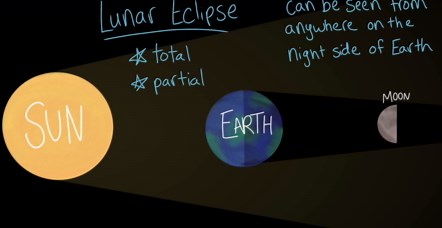 Lunar Eclipse
☆ total
☆ partial
Can be seen from
anywhere on the
night side of Earth
SUN
EARTH
MOON